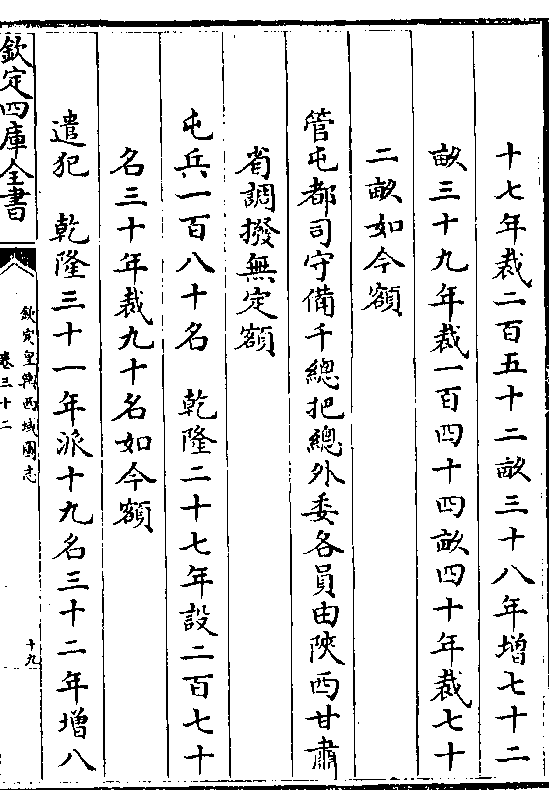 十七年裁二百五十二畝三十八年增七十二
畝三十九年裁一百四十四畝四十年裁七十
二畝如今額
管屯都司守備千總把總外委各員由陝西甘肅
省調撥無定額
屯兵一百八十名　乾隆二十七年設二百七十
名三十年裁九十名如今額
遣犯　乾隆三十一年派十九名三十二年增八
欽定四庫全書
欽定皇輿西域圖志
卷三十二
十九